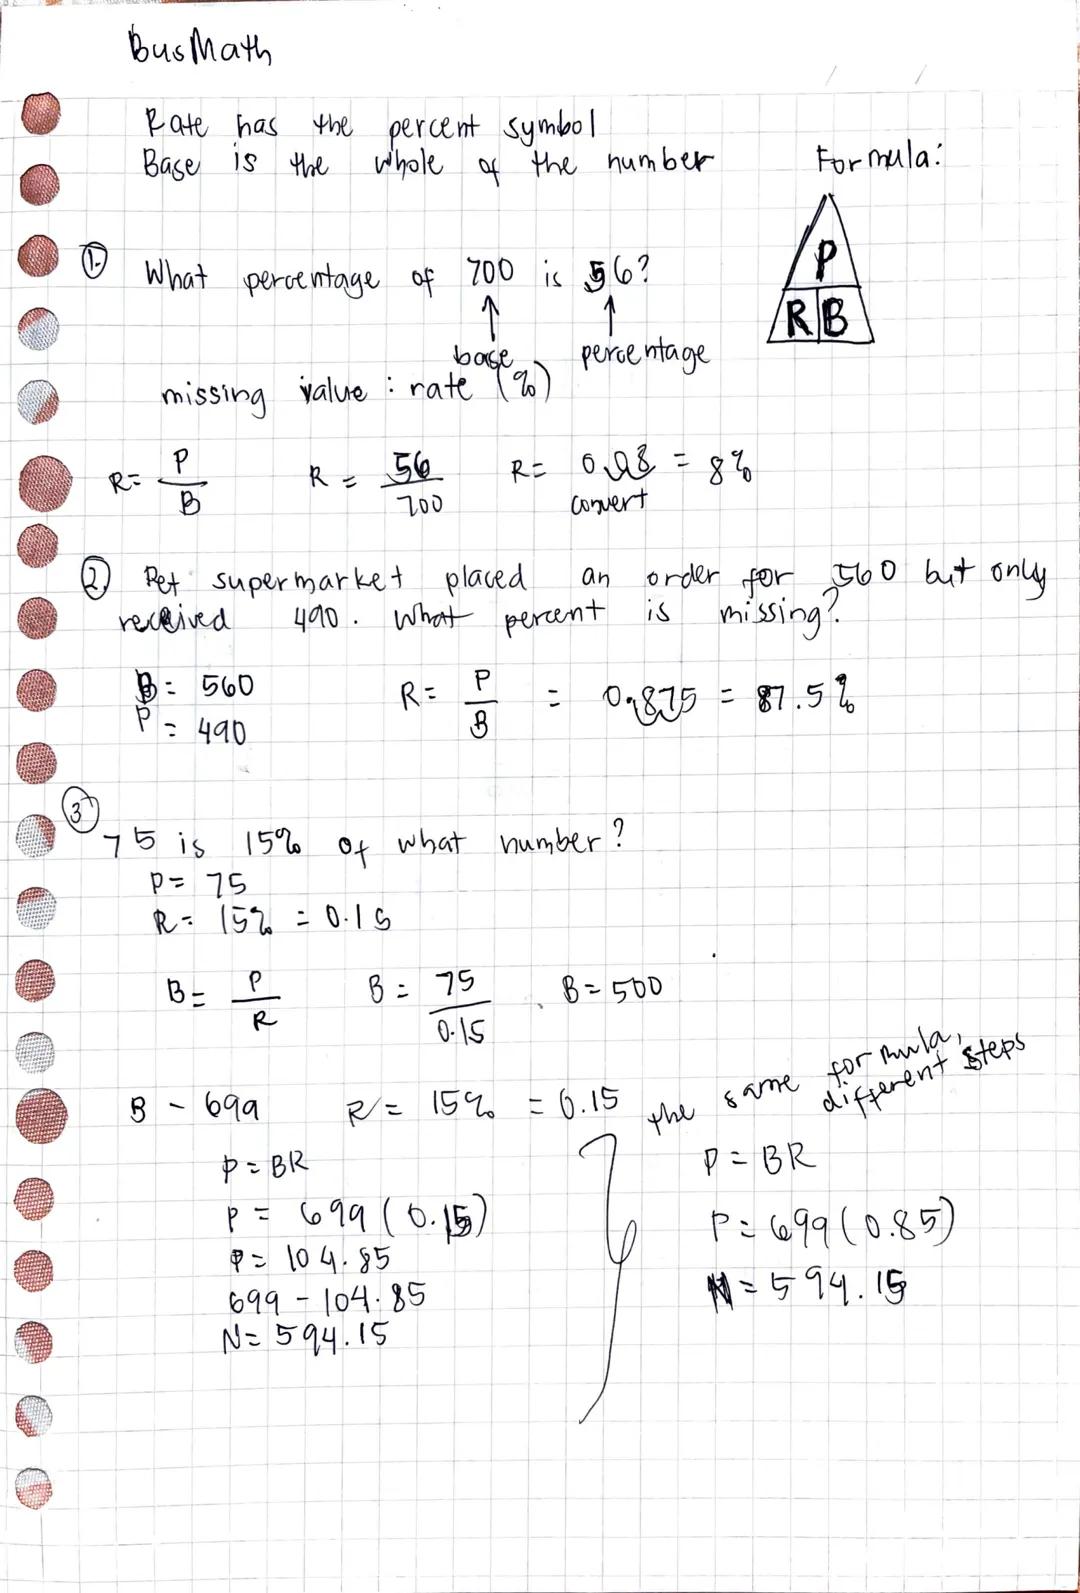 BusMath
Rate has the percent symbol
Base is the whole of the number
Formula:
P
R B
1. What percentage of 700 is 56?
base percentage
missing value : rate (%)
R = P/B R = 56/700 R = 0.08 = 8%
convert
2. Pet supermarket placed an order for 560 but only
received 490. What percent is missing?
B = 560
P = 490
R = P/B = 0.875 = 87.5%
3
75 is 15% of what number?
P = 75
R = 15% = 0.15
B = P/R B = 75/0.15 B = 500
B - 699 R = 15% = 0.15
the same formula,
different steps
P = BR
P = 699 (0.15)
P = 104.85
699 - 104.85
N = 594.15
P = BR
P = 699 (0.85)
N = 594.15